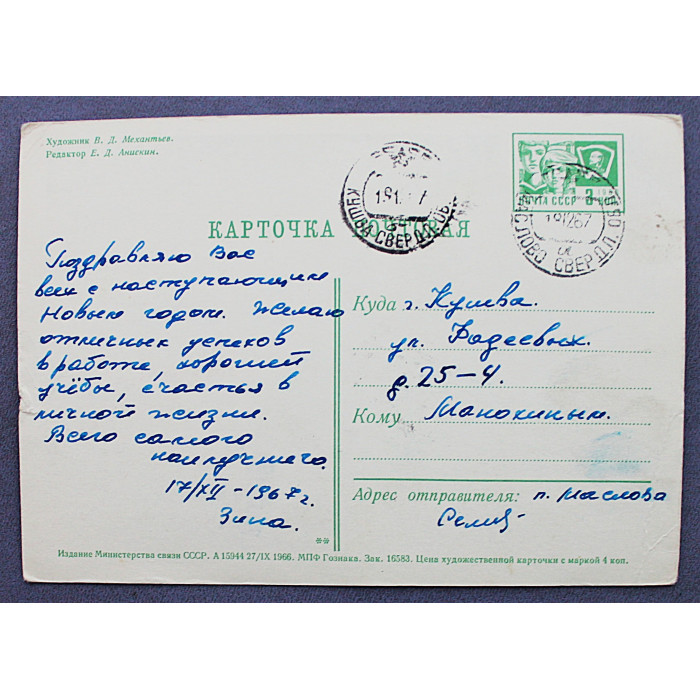 Художник В. Д. Механтьев.
Редактор Е. Д. Анискин.
ПОЧТА СССР 3
КУШВА СВЕРДЛ. ОБ.
МАСЛОВО СВЕРД
КАРТОЧКА ПОЧТОВАЯ
Поздравляю Вас
всех с наступающим
Новым годом. Желаю
отличных успехов
в работе, хорошей
учёбы, счастья в
личной жизни.
Всего самого
наилучшего.
17/XII-1967г.
Зина.
Куда г. Кушва.
ул. Фадеевых.
д. 25-4.
Кому Манохиным.
Адрес отправителя: п. Маслова
**
Издание Министерства связи СССР. А 15944 27/IX 1966. МПФ Гознака. Зак. 16583. Цена художественной карточки с маркой 4 коп.